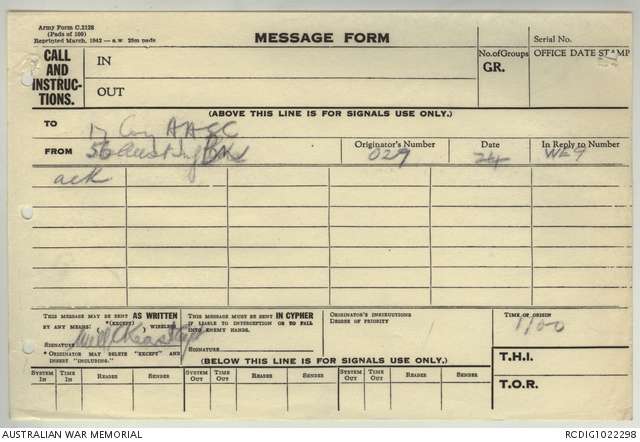 Army Form C.2128
(Pads of 100)
Reprinted March, 1942 — s.w. 25m pads
MESSAGE FORM
Serial No.
CALL
AND
INSTRUC-
TIONS.
IN
OUT
No. of Groups
GR.
OFFICE DATE STAMP
(ABOVE THIS LINE IS FOR SIGNALS USE ONLY.)
TO 17 Coy AASC
FROM 56 Aust Inf Bn
Originator's Number
029
Date
24
In Reply to Number
WE9
ack
THIS MESSAGE MAY BE SENT AS WRITTEN
BY ANY MEANS. *(EXCEPT) WIRELESS
SIGNATURE Capt
* ORIGINATOR MAY DELETE "EXCEPT" AND
INSERT "INCLUDING."
THIS MESSAGE MUST BE SENT IN CYPHER
IF LIABLE TO INTERCEPTION OR TO FALL
INTO ENEMY HANDS.
SIGNATURE
ORIGINATOR'S INSTRUCTIONS
DEGREE OF PRIORITY
TIME OF ORIGIN
1100
(BELOW THIS LINE IS FOR SIGNALS USE ONLY.)
T.H.I.
T.O.R.
SYSTEM IN TIME IN READER SENDER SYSTEM OUT TIME OUT READER SENDER SYSTEM OUT TIME OUT READER SENDER
AUSTRALIAN WAR MEMORIAL
RCDIG1022298